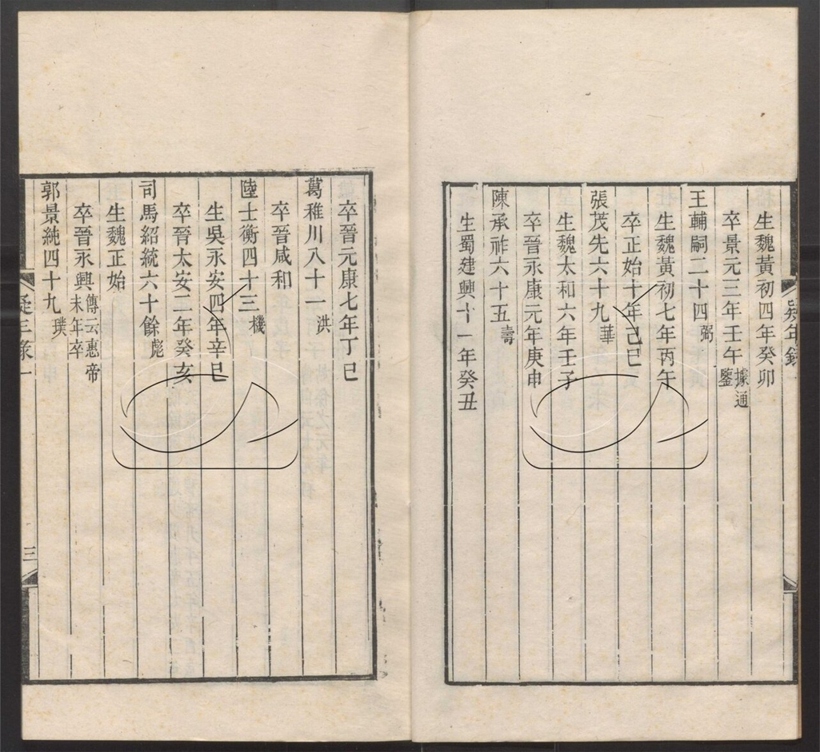 疑年錄一
生魏黃初四年癸卯
卒景元三年壬午據通鑒
王輔嗣二十四弼
生魏黃初七年丙午
卒正始十年己巳
張茂先六十九華
生魏太和六年壬子
卒晉永康元年庚申
陳承祚六十五壽
生蜀建興十一年癸丑
卒晉元康七年丁巳
葛稚川八十一洪
卒晉咸和
陸士衡四十三機
生吳永安四年辛巳
卒晉太安二年癸亥
司馬紹統六十餘彪
生魏正始
卒晉永興傳云惠帝末年卒
郭景純四十九璞
疑年錄一
三